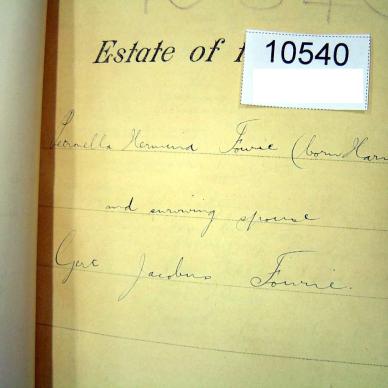 Estate of t
10540
Petronella Hermina Fourie (born Harm
and surviving spouse
Gert Jacobus Fourie.